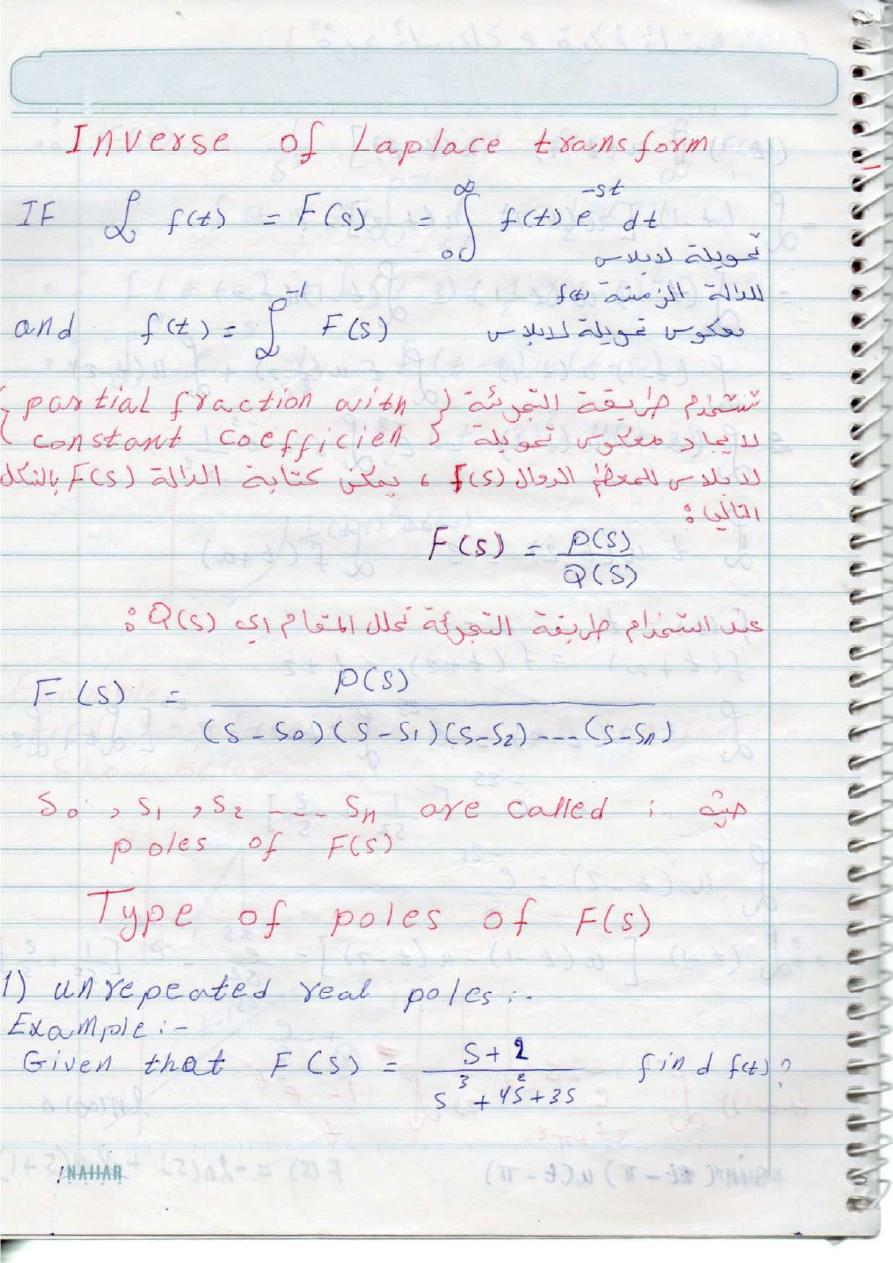 Inverse of Laplace transform
IF ℒ f(t) = F(s) = ∫₀^∞ f(t) e^-st dt
تحويلة لابلاس
للدالة الزمنية f(t)
and f(t) = ℒ^-1 F(s) معكوس تحويلة لابلاس
تستخدم طريقة التجزئة { partial fraction with
constant coefficien } لايجاد معكوس تحويلة
لابلاس للمعظم الدوال f(s) ، يمكن كتابة الدالة F(s) بالشكل
التالي :
F(s) = P(s) / Q(s)
عند استخدام طريقة التجزئة نحلل المقام اي Q(s) :
F(s) = P(s) / (s-s₀)(s-s₁)(s-s₂)----(s-sₙ)
حيث : s₀ , s₁ , s₂ ---- sₙ are called
poles of F(s)
Type of poles of F(s)
1) unrepeated real poles :-
Example :-
Given that F(s) = s+2 / s³+4s²+3s find f(t) ?
NAHAR